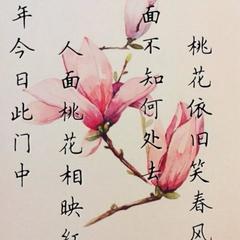 年今日此门中
人面桃花相映红
面不知何处去
桃花依旧笑春风